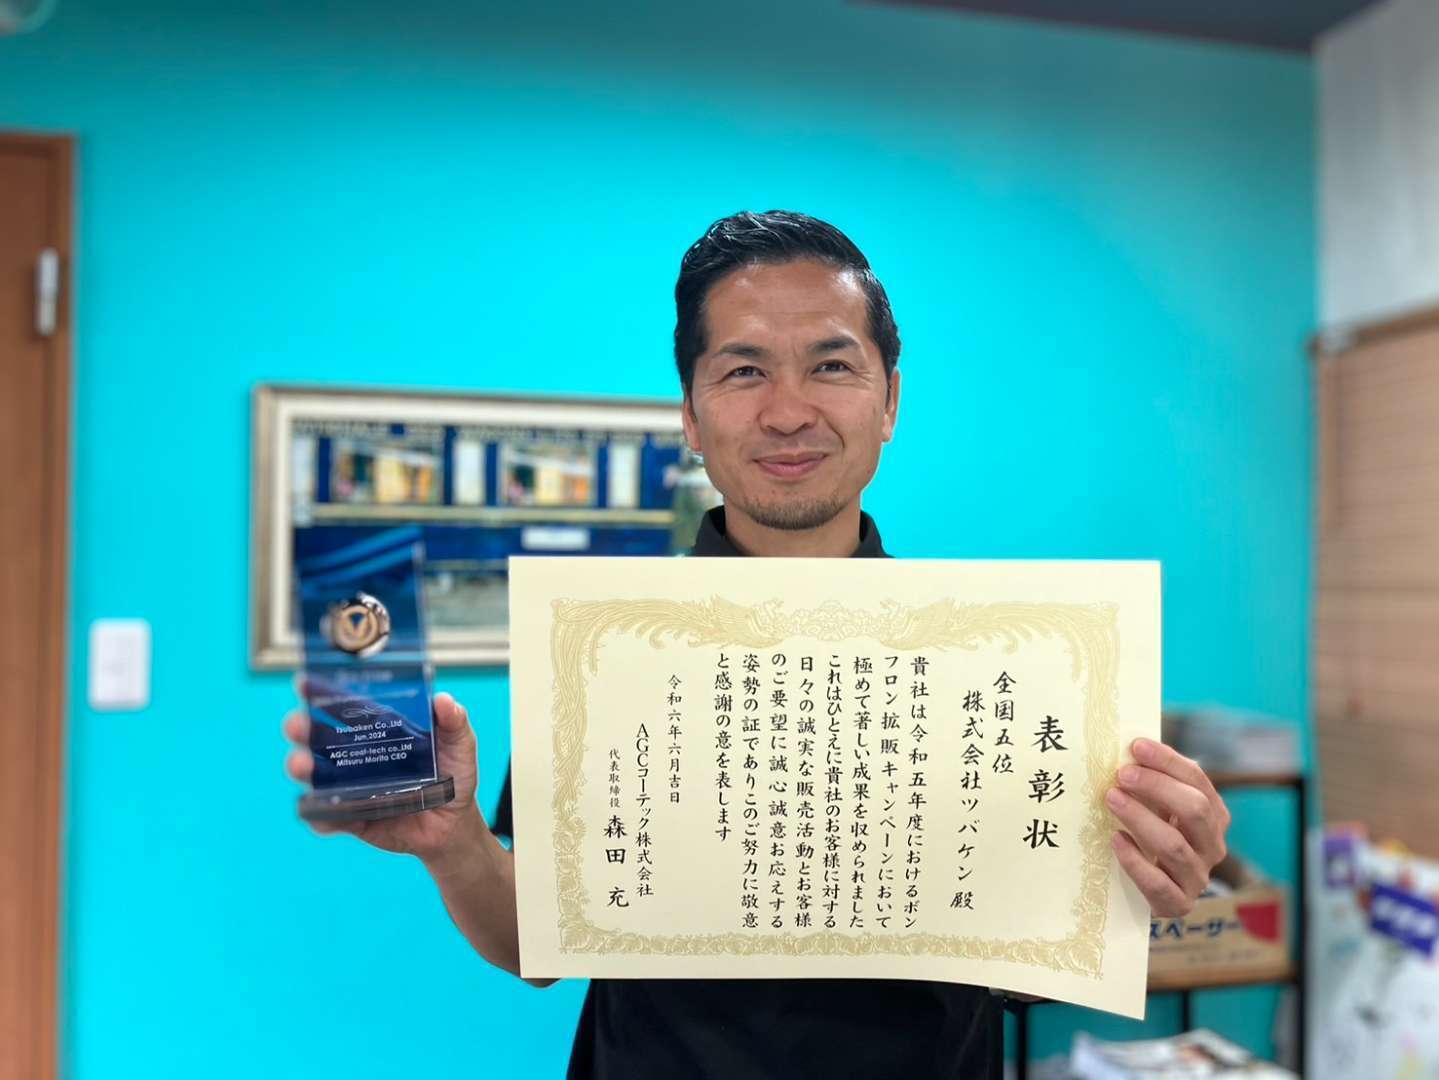 表彰状
全国五位
株式会社ツバケン 殿
貴社は令和五年度におけるボン
フロン拡販キャンペーンにおいて
極めて著しい成果を収められました
これはひとえに貴社のお客様に対する
日々の誠実な販売活動とお客様
のご要望に誠心誠意お応えする
姿勢の証でありこのご努力に敬意
と感謝の意を表します
令和六年六月吉日
AGCコーテック株式会社
代表取締役 森田 充
Tsubaken Co.,Ltd
Jun,2024
AGC coat-tech co.,Ltd
Mitsuru Morita CEO
スペーサー